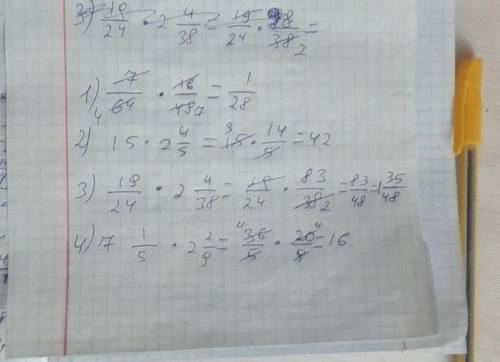 3) 19/24 · 2 4/38 = 19/24 · 98/38 2 =
1) 7/64 4 · 16/49 7 = 1/28
2) 15 · 2 4/5 = 3 15 · 14/5 = 42
3) 19/24 · 2 4/38 = 19/24 · 83/38 2 = 83/48 = 1 35/48
4) 7 1/5 · 2 2/9 = 4 36/5 · 20 4/9 = 16.